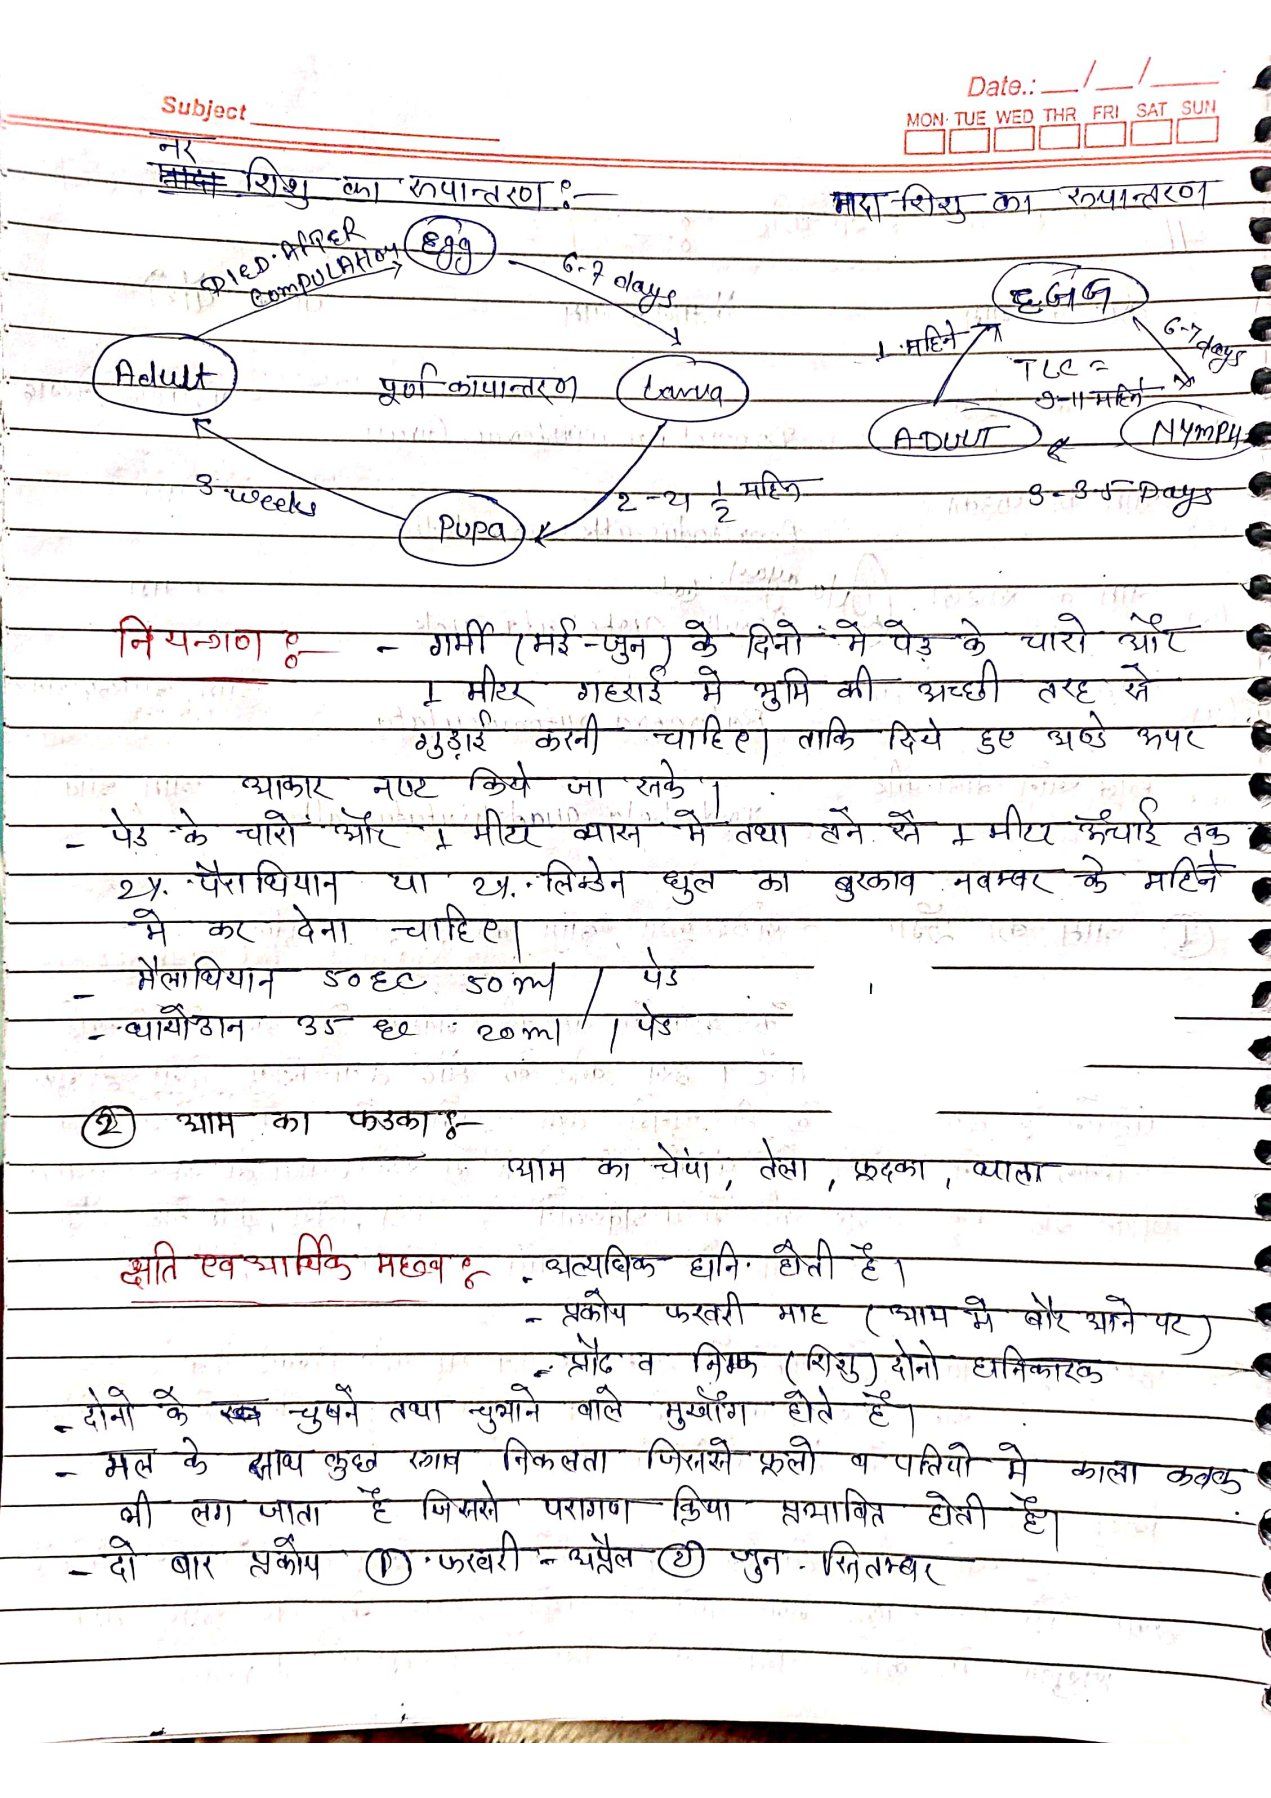 Subject
Date.: __/__/__
MON TUE WED THR FRI SAT SUN
नर
शिशु का रूपान्तरण :-
मादा शिशु का रूपान्तरण
DIED AFTER
COMPULATION
Egg
6-7 days
Larva
2-2 1/2 महिने
Pupa
3 weeks
Adult
पूर्ण कायान्तरण
EGG
6-7 days
NYMPH
3-3.5 Days
ADULT
1 महिने
TLC =
9-11 महिने
नियन्त्रण :-
- गर्मी (मई-जुन) के दिनो में पेड़ के चारो और
1 मीटर गहराई मे भुमि की अच्छी तरह से
गुड़ाई करनी चाहिए। ताकि दिये हुए अण्डे ऊपर
आकार नष्ट किये जा सके।
- पेड के चारो और 1 मीटर व्यास मे तथा तने से 1 मीटर ऊँचाई तक
2%. पैराथियान या 2%. लिन्डेन धुल का बुरकाव नवम्बर के महिने
मे कर देना चाहिए।
- मैलाथियान 50 EC 50 ml / पेड
- थायोडान 35 EC 20 ml / पेड
(2) आम का फडका :-
आम का चेपा, तेला, फुदका,
क्षति एव आर्थिक महत्व :
- अत्यधिक हानि होती है।
- प्रकोप फरवरी माह (आम मे बौर आने पर)
- प्रौढ व निम्फ (शिशु) दोनो हानिकारक
- दोनो के चुषने तथा चुभाने वाले मुखाँग होते है।
- मल के साथ कुछ स्त्राव निकलता जिससे फुलो व पत्तियो मे काला कवक
भी लग जाता है जिससे परागण क्रिया प्रभावित होती है।
- दो बार प्रकोप (1) फरवरी - अप्रैल (2) जुन - सितम्बर